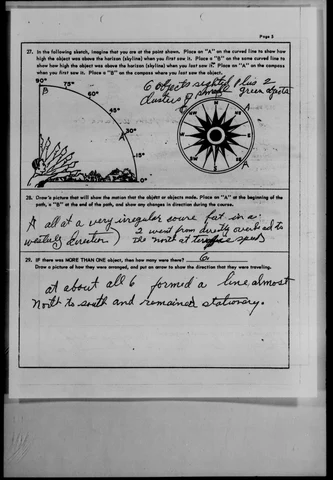 Page 2
27. In the following sketch, imagine that you are at the point shown. Place an "A" on the curved line to show how
high the object was above the horizon (skyline) when you first saw it. Place a "B" on the same curved line to
show how high the object was above the horizon (skyline) when you last saw it. Place an "A" on the compass
when you first saw it. Place a "B" on the compass where you last saw the object.
6 objects sighted plus 2
clusters of small green objects
90°
B
75°
60°
45°
30°
A
15°
0°
A
B
28. Draw a picture that will show the motion that the object or objects made. Place an "A" at the beginning
of the path, a "B" at the end of the path, and show any changes in direction during the course.
A all at a very irregular but in a
westerly direction) 2 went from directly overhead to
the north at speed
29. IF there was MORE THAN ONE object, then how many were there? 6
Draw a picture of how they were arranged, and put an arrow to show the direction that they were traveling.
at about all 6 formed a line almost
North to south and remained stationary.